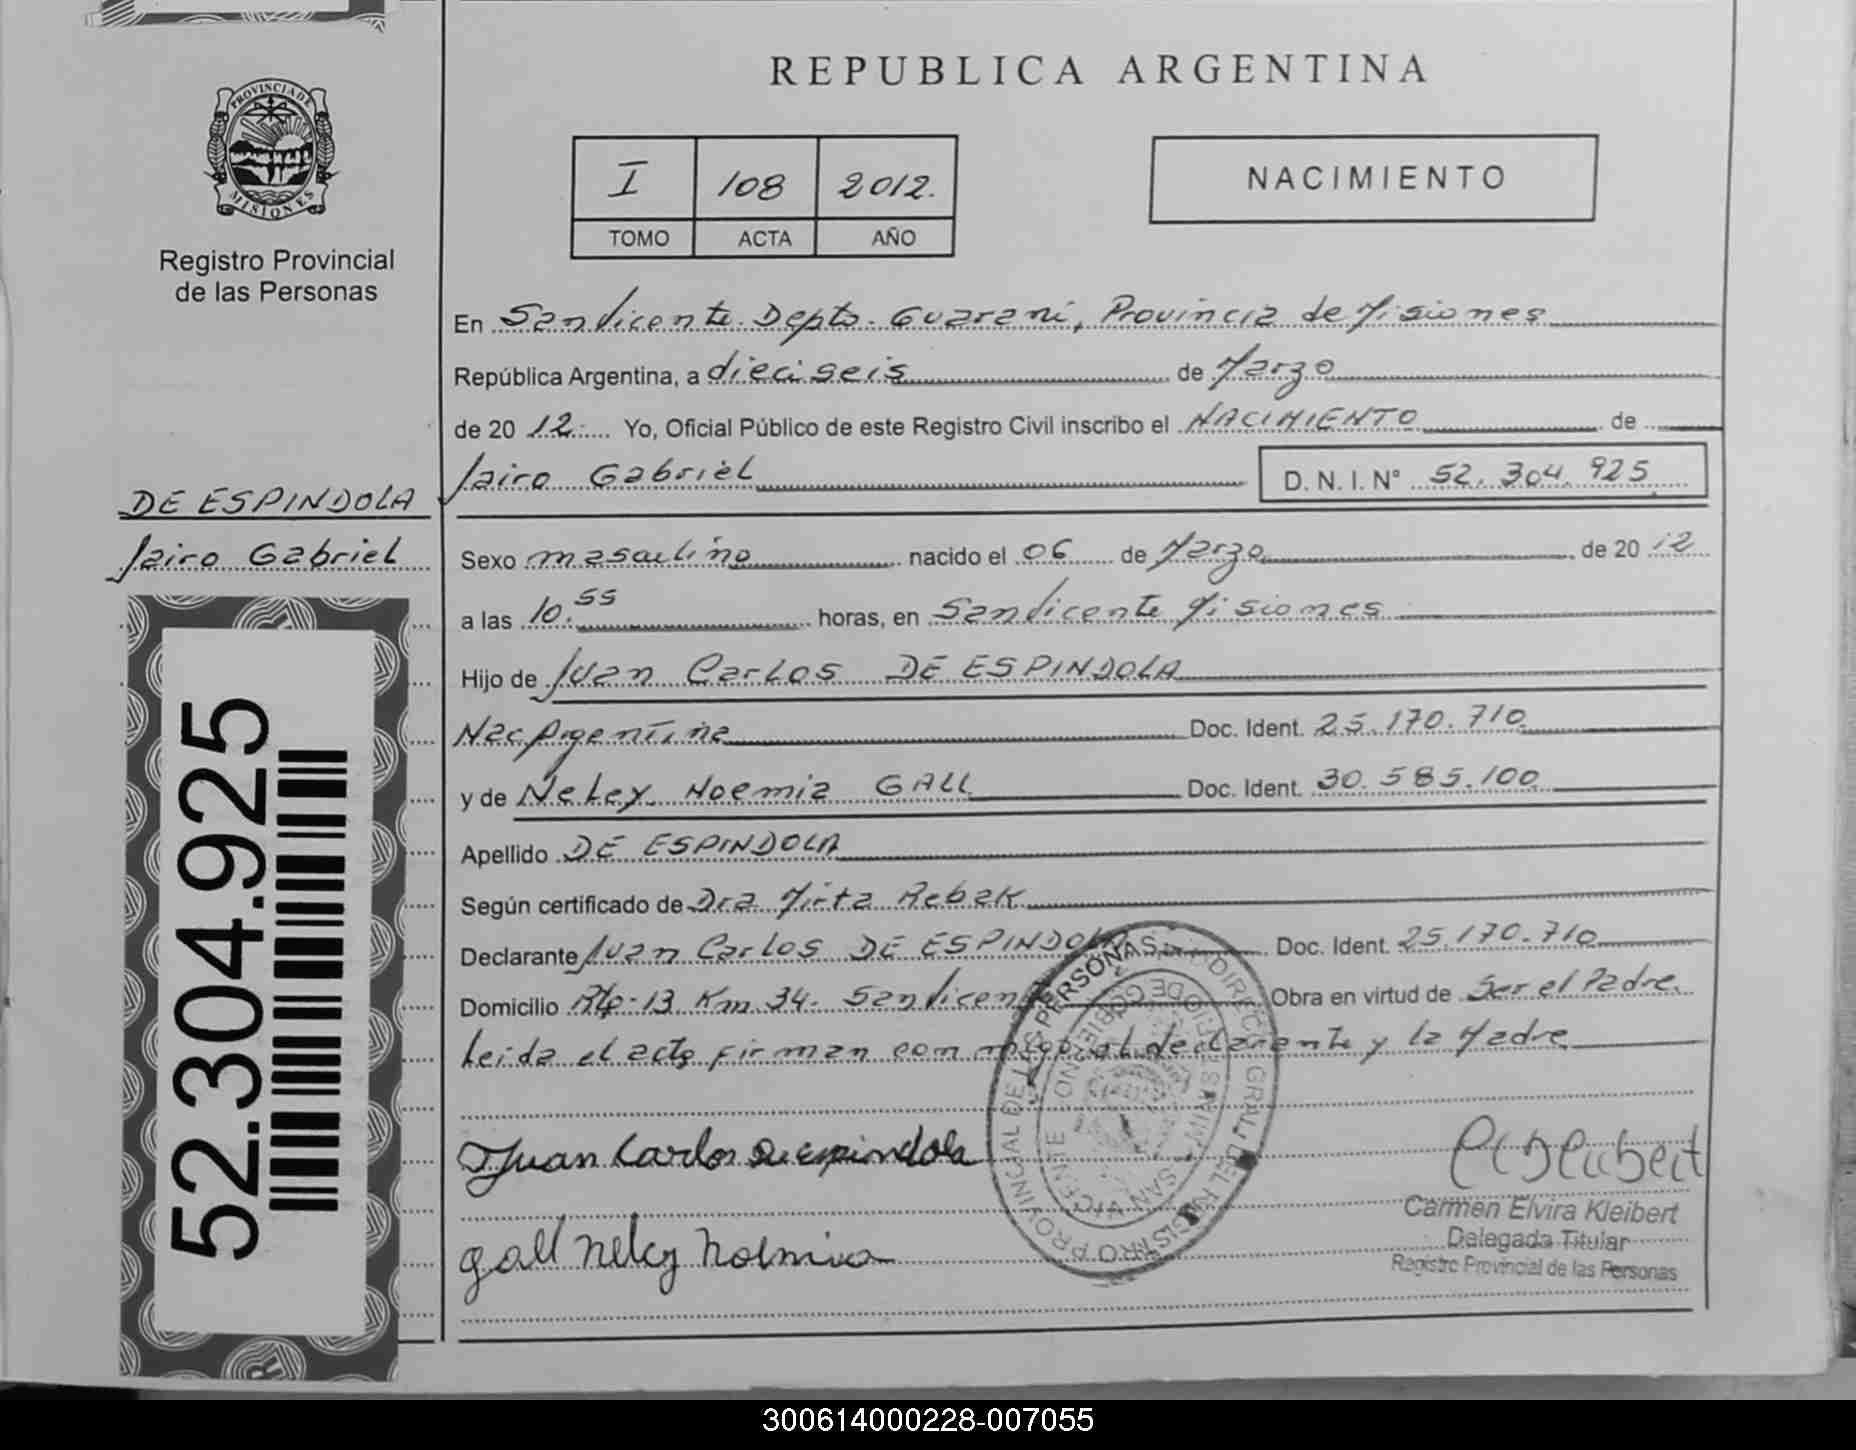 PROVINCIA DE
MISIONES
Registro Provincial
de las Personas
DE ESPINDOLA
Jairo Gabriel
52.304.925
REPUBLICA ARGENTINA
I 108 2012.
TOMO ACTA AÑO
NACIMIENTO
En San Vicente. Depto. Guarani, Provincia de Misiones
República Argentina, a dieciseis de Marzo
de 20 12 Yo, Oficial Público de este Registro Civil inscribo el NACIMIENTO de
Jairo Gabriel D. N. I. N° 52.304.925
Sexo masculino nacido el 06 de Marzo de 20 12
a las 10.55 horas, en San Vicente Misiones
Hijo de Juan Carlos DE ESPINDOLA
Nac Argentina Doc. Ident. 25.170.710
y de Neley Noemia GALL Doc. Ident. 30.585.100
Apellido DE ESPINDOLA
Según certificado de Dra Mirta Rebak
Declarante Juan Carlos DE ESPINDOLA Doc. Ident. 25.170.710
Domicilio Rta-13 Km. 34. San Vicente Obra en virtud de Ser el Padre.
Leida el acta firman conmigo el declarante y la Madre
DIREC. GRAL. DEL REGISTRO PROVINCIAL DE LAS PERSONAS
MINISTERIO DE GOBIERNO
SAN VICENTE
Juan Carlos De espindola
gall neley noemia
Carmen Elvira Kleibert
Delegada Titular
Registro Provincial de las Personas
300614000228-007055